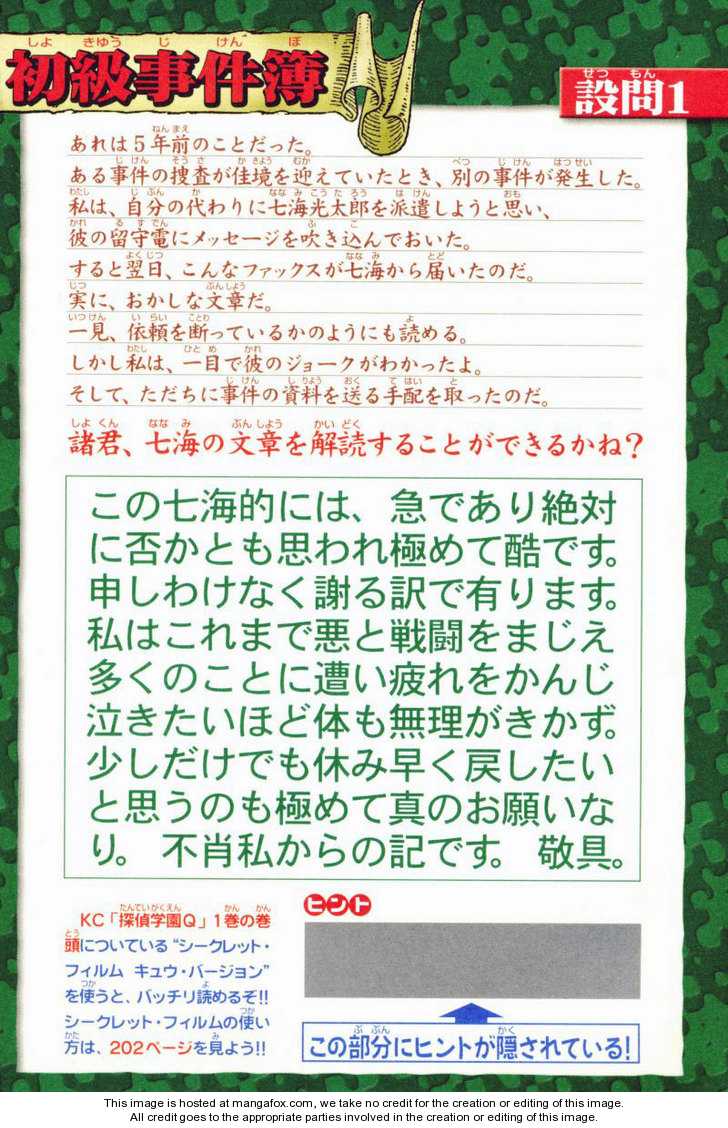 初級事件簿
設問1
あれは5年前のことだった。
ある事件の捜査が佳境を迎えていたとき、別の事件が発生した。
私は、自分の代わりに七海光太郎を派遣しようと思い、
彼の留守電にメッセージを吹き込んでおいた。
すると翌日、こんなファックスが七海から届いたのだ。
実に、おかしな文章だ。
一見、依頼を断っているかのようにも読める。
しかし私は、一目で彼のジョークがわかったよ。
そして、ただちに事件の資料を送る手配を取ったのだ。
諸君、七海の文章を解読することができるかね?
この七海的には、急であり絶対
に否かとも思われ極めて酷です。
申しわけなく謝る訳で有ります。
私はこれまで悪と戦闘をまじえ
多くのことに遭い疲れをかんじ
泣きたいほど体も無理がきかず。
少しだけでも休み早く戻したい
と思うのも極めて真のお願いな
り。 不肖私からの記です。 敬具。
KC「探偵学園Q」1巻の巻
頭についている“シークレット・
フィルム キュウ・バージョン”
を使うと、バッチリ読めるぞ!!
シークレット・フィルムの使い
方は、202ページを見よう!!
ヒント
この部分にヒントが隠されている!
This image is hosted at mangafox.com, we take no credit for the creation or editing of this image.
All credit goes to the appropriate parties involved in the creation or editing of this image.